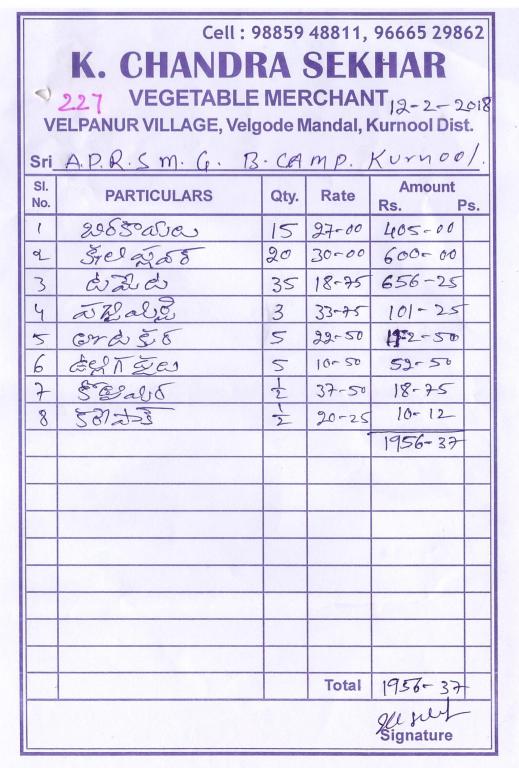 Cell : 98859 48811, 96665 29862
K. CHANDRA SEKHAR
227 VEGETABLE MERCHANT 12-2-2018
VELPANUR VILLAGE, Velgode Mandal, Kurnool Dist.
Sri A.P.R.S M. G. B. CAMP. Kurnool.
Sl. No. PARTICULARS Qty. Rate Amount Rs. Ps.
1 బీరకాయలు 15 27-00 405-00
2 20 30-00 600-00
3 టమేట 35 18-75 656-25
4 పచ్చిమిర్చి 3 33-75 101-25
5 5 22-50 112-50
6 ఉల్లిగడ్డలు 5 10-50 52-50
7 ½ 37-50 18-75
8 కరేపాక్ ½ 20-25 10-12
1956-37
Total 1956-37
Signature